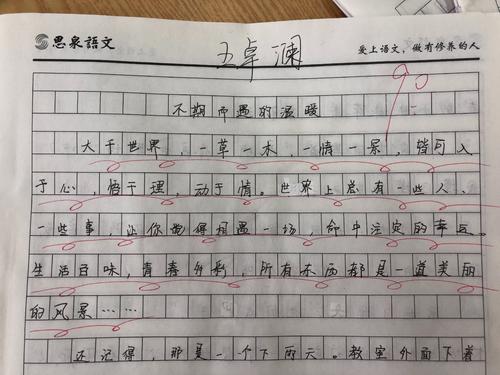 思泉语文
王卓澜
爱上语文，做有修养的人
90
不期而遇的温暖
大千世界，一草一木，一情一景，皆可入
于心，悟于理，动于情。世界上总有一些人、
一些事，让你觉得相遇一场，命中注定的幸运。
生活百味，青春多彩，所有东西都是一道美丽
的风景……
还记得，那是一个下雨天。教室外面下着